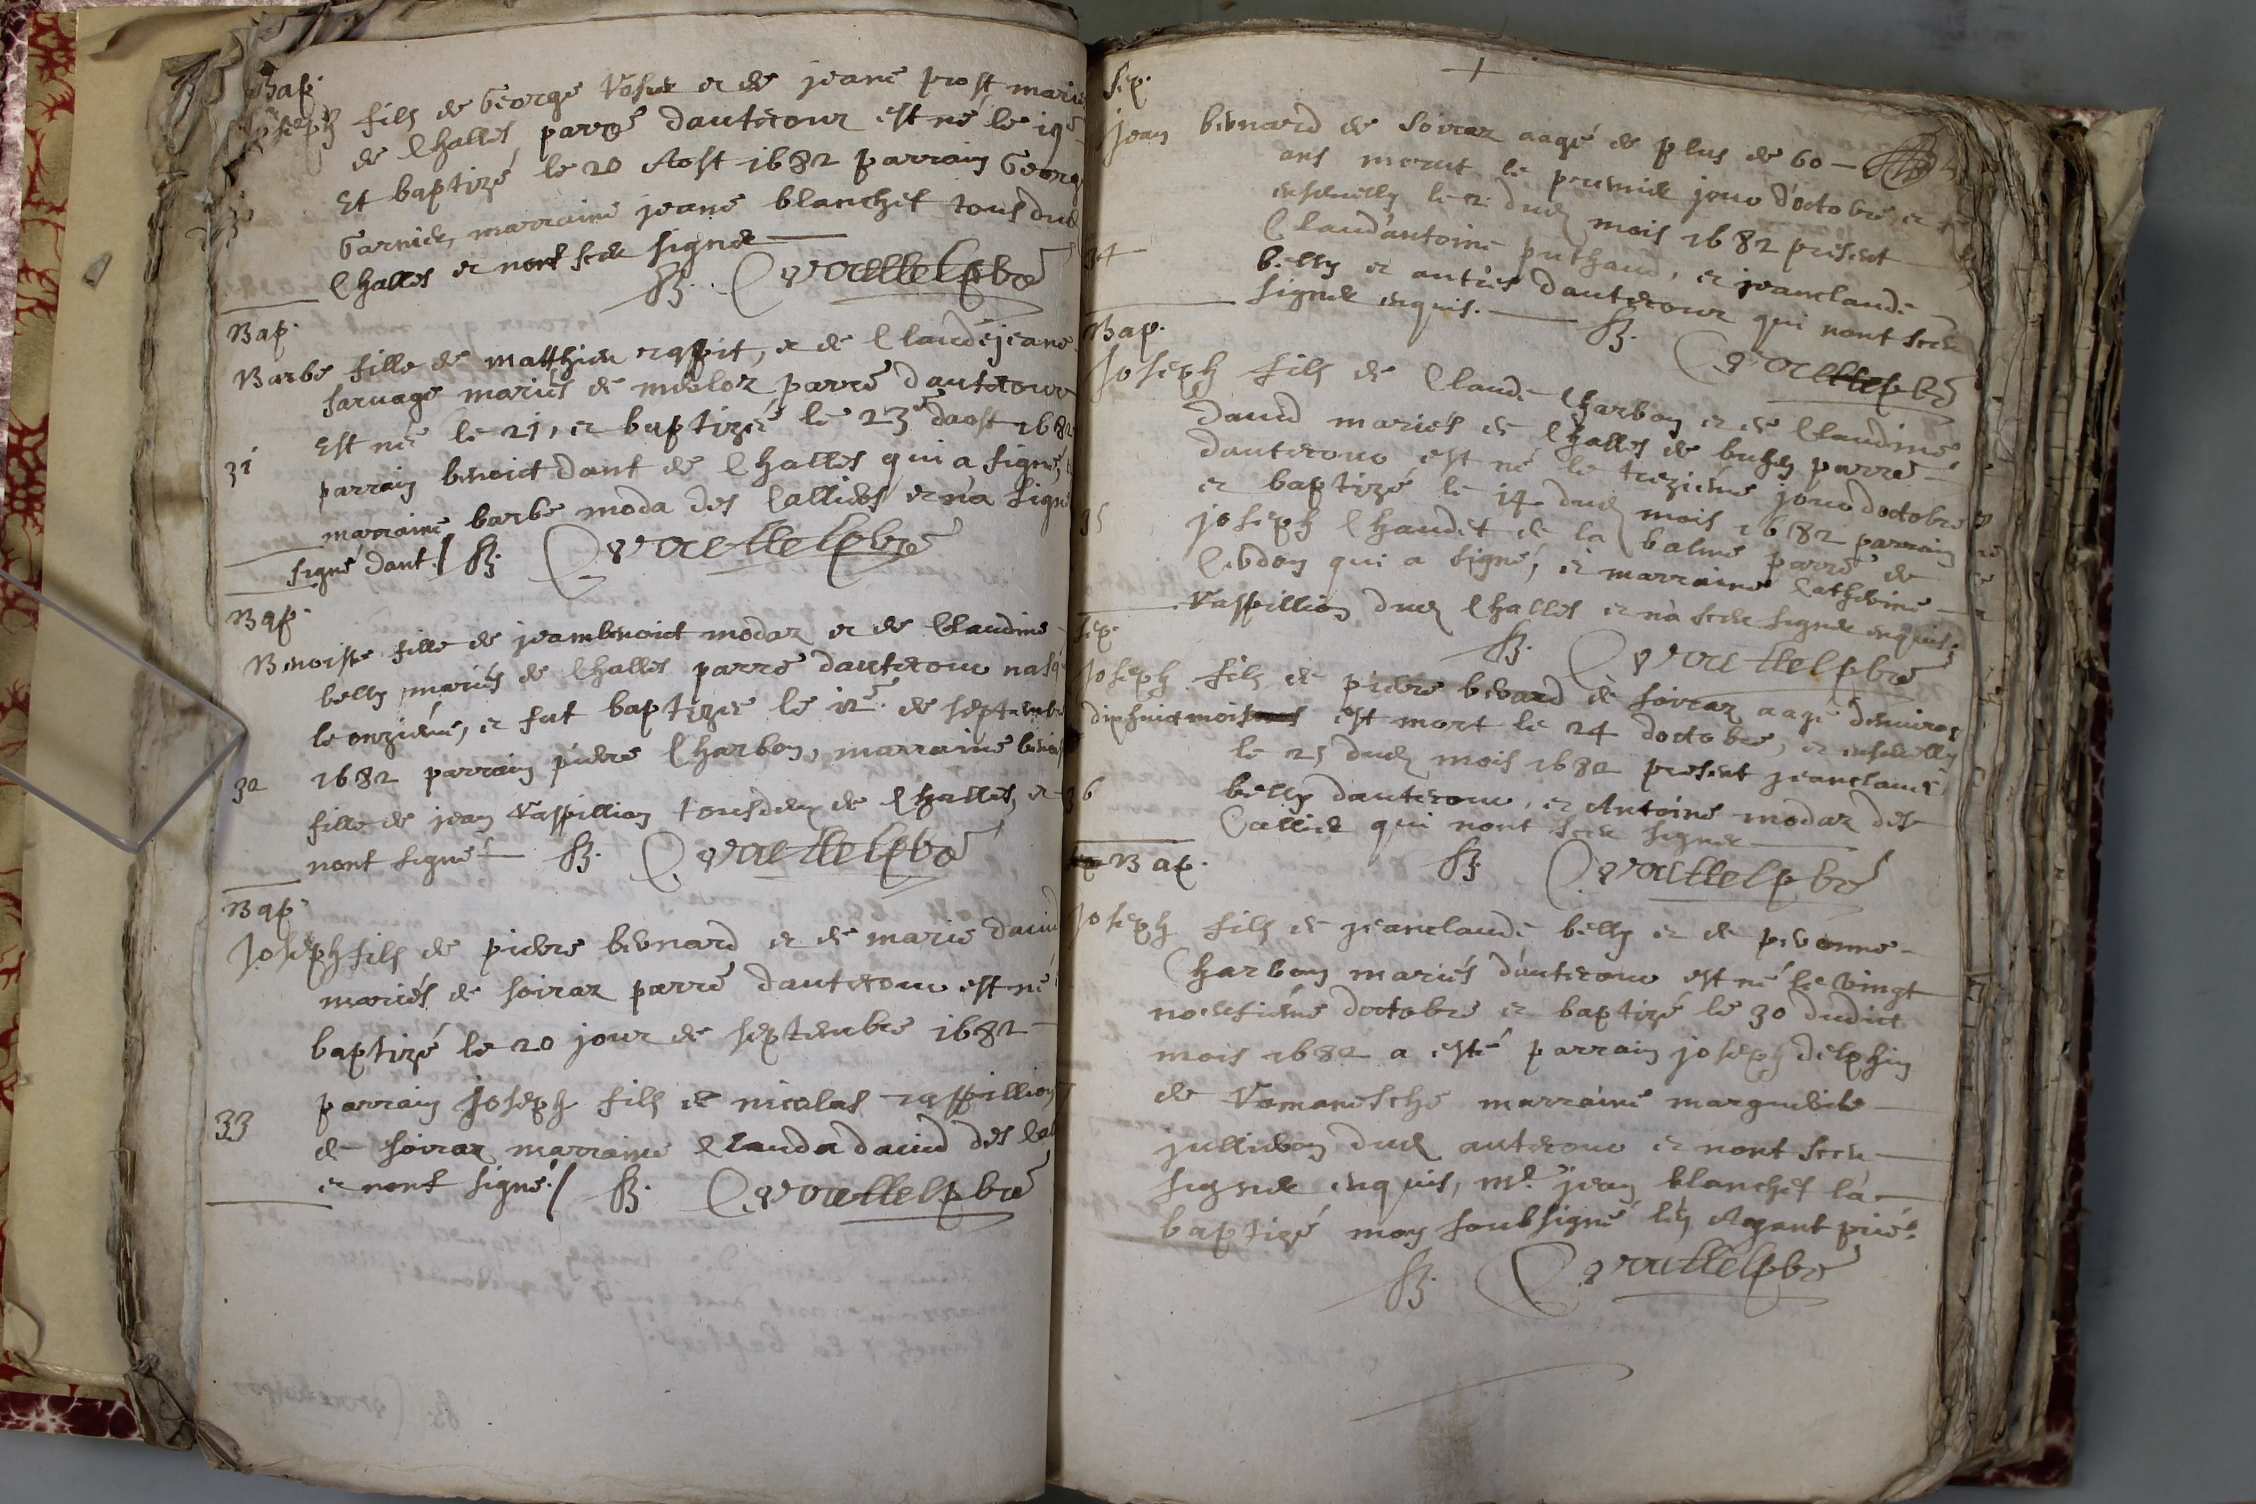 Bap.
Joseph fils de George et de jeane prost mariés
de Challes parre d'autecour est né le 19e
Et baptizé le 20 Aost 1682 parrain George
Garnier, marraine jeane blanchet tous dud.
Challes et nont sceu signer
Bap.
Barbe fille de matthieu et de Claudejeane
sauvage mariés de parre dautecour
Est née le 21, et baptizée le 23e daost 1682
31
parrain benoict dant de Challes qui a signé,
marraine barbe moda des Calliers et na signé
signé dant./.
Bap.
Benoiste fille de jeambenoict modaz et de Claudine
belly mariés de Challes parre dautecour
le onziéme, et fut baptizée le 12e de septembre
32 1682 parrain pierre Charbon, marraine
fille de jean Vaspillion tousdeux de Challes, et
nont signé
Bap.
Joseph fils de pierre bernard et de marie david
mariés de soiraz parre dautecour est né
baptizé le 20 jour de septembre 1682
parrain joseph fils de nicolas
33
de soiraz marraine Clauda david des
et nont signé./
Sep.
jean bernard de soiraz aagé de plus de 60
ans morut le premier jour doctobre, et
ensevely le 2 dud. mois 1682 present
Claudantoine puthaud, et jeanclaude
34
belly et autres dautecour qui nont sceu
signer enquis.
Bap.
Joseph fils de Claude Charbon et de Claudine
david mariés de Challes de parre
dautecour est né le treziéme jour doctobre
et baptizé le 14 dud. mois 1682 parrain
35
joseph Chaudet de la balme parre de
Cerdon qui a signé, et marraine Catherine
Vaspillion dud. Challes et na sceu signer enquise
Sep.
Joseph fils de pierre berard de soiraz aagé denviron
dixhuict mois est mort le 24 doctobre, et ensevelly
le 25 dud. mois 1682 present jeanclaude
36
belly dautecour, et Antoine modaz des
Callier qui nont sceu signer
Bap.
Joseph fils de jeanclaude belly et de pevonne
Charbon mariés dautecour est né le vingt
neufiéme doctobre et baptizé le 30 dudict
mois 1682 a esté parrain joseph delphin
de marraine marguerite
jullieron dud. autecour et nont sceu
signer enquis, mre jean blanchet la
baptizé moy soubsigné